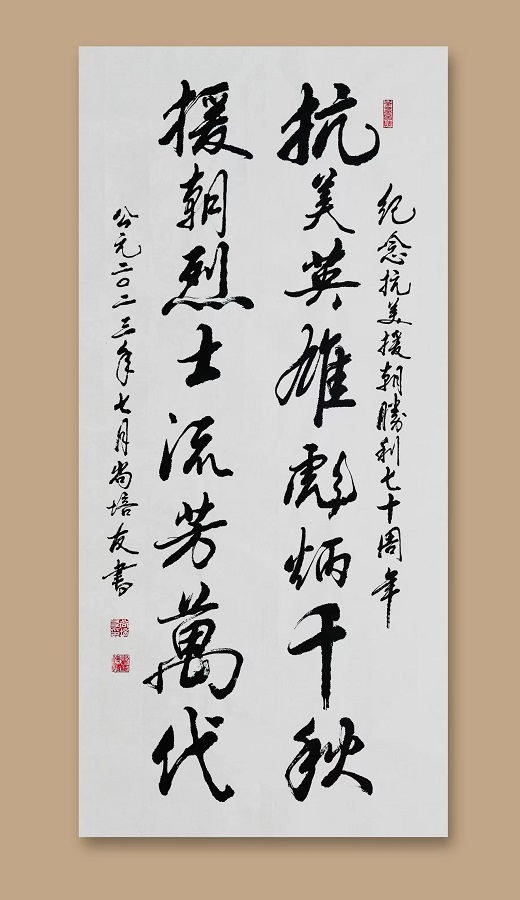 紀念抗美援朝勝利七十周年
抗美英雄彪炳千秋
援朝烈士流芳萬代
公元二〇二三年七月尚培友書